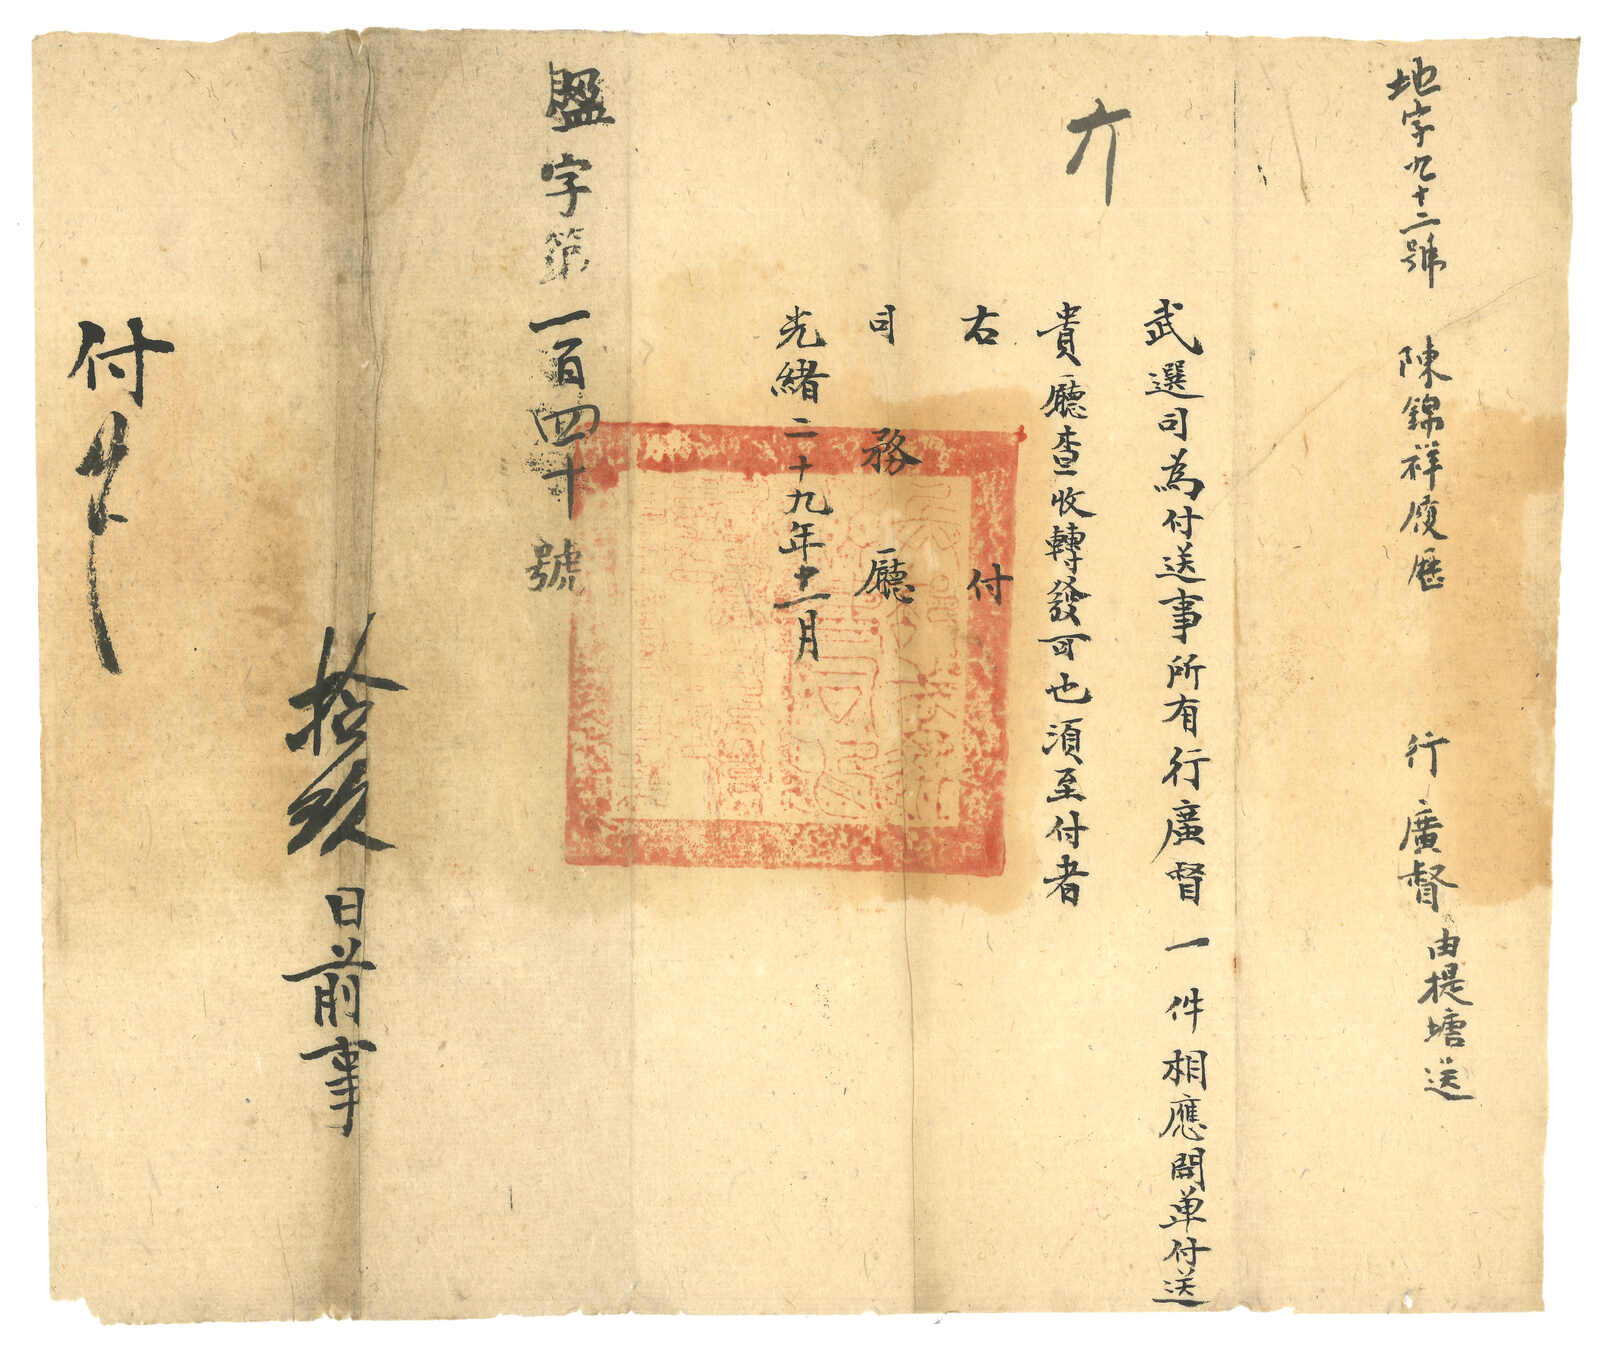 地字九十二號 陳錦祥履歷 行廣督由提塘送
武選司為付送事所有行廣督一件相應開單付送
貴廳查收轉發可也須至付者
右付
司務廳
光緒二十九年十一月
盈字第一百四十號
拾玖日前事
付